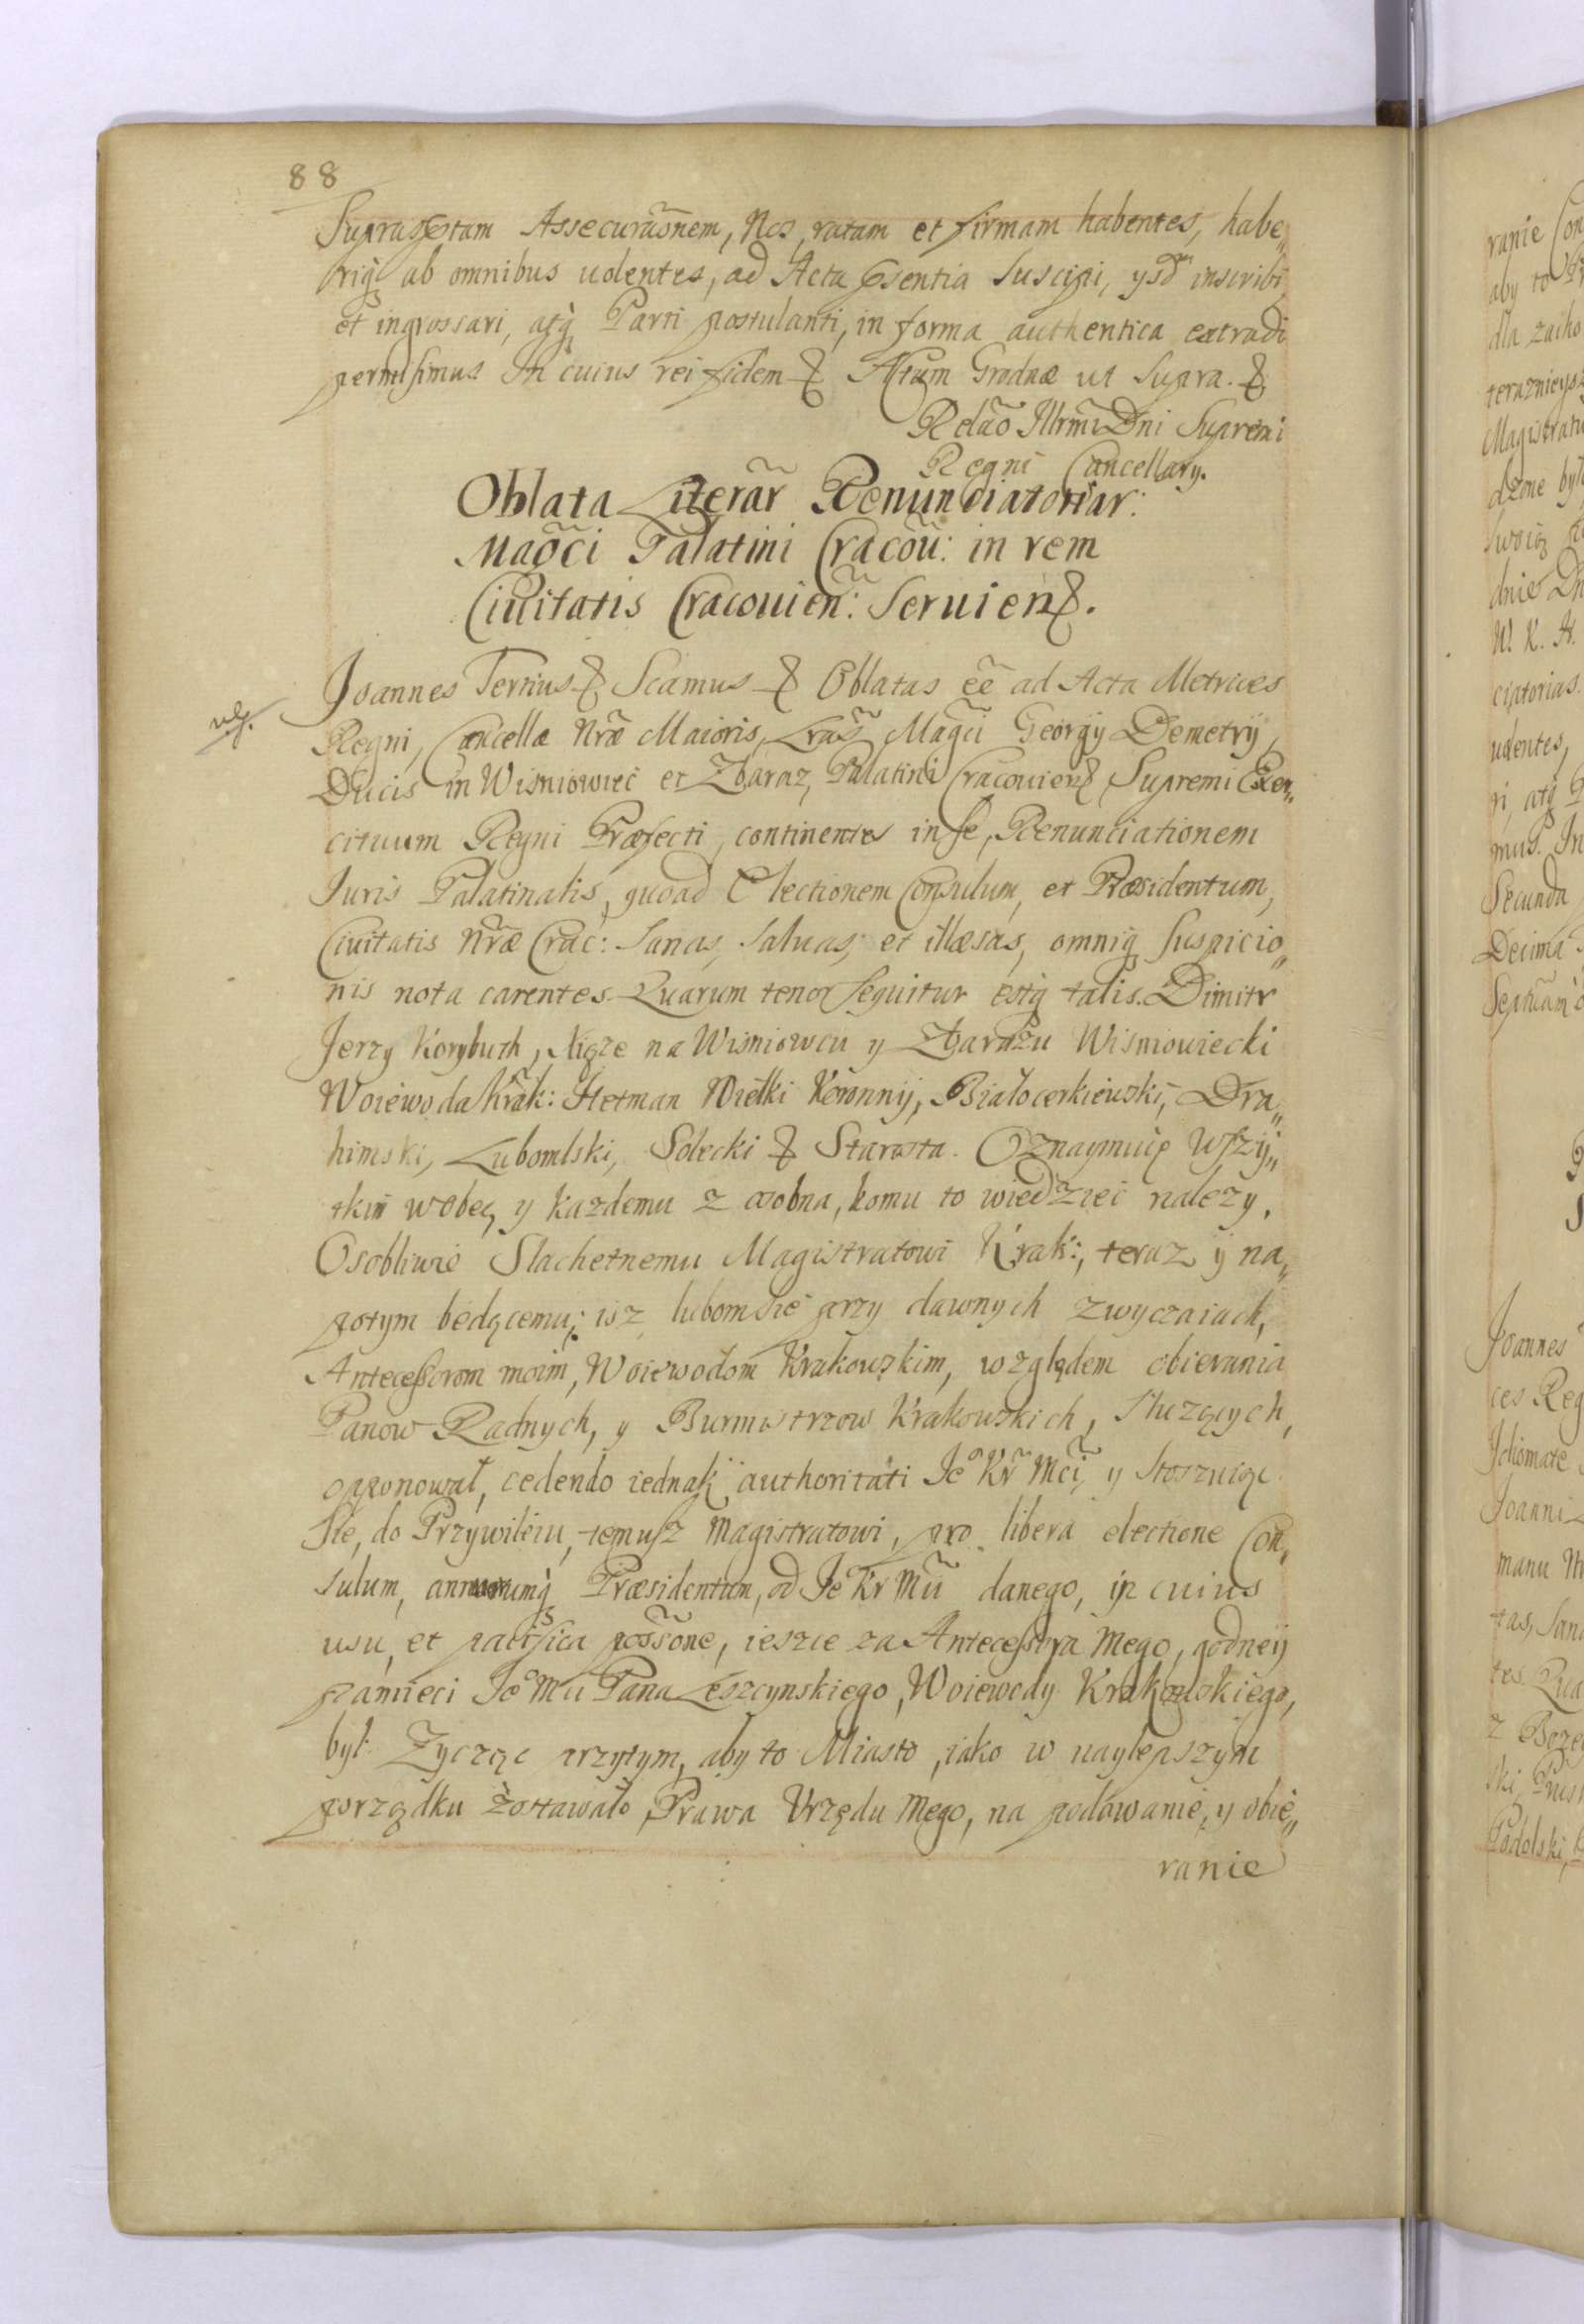 88
Suprascptam Assecuraõnem, Nos, ratam et firmam habentes, habe„
riq̃ ab omnibus uolentes, ad Acta pñsentia suscipi, ysdẽ inscribi
et ingrossari, atq̃ Parti postulanti, in forma authentica extradi
permisimus. In cuius rei fidem & Actum Grodnæ ut supra. &
Relaõ Illrmi Dni Supremi
Regni Cancellarij.
Oblata Literar̃ Renunciatoriar:
Magci Palatini Cracou: in rem
Ciuitatis Cracouien: Seruien&.
Joannes Tertius & Scamus & Oblatas eẽ ad Acta Metrices
Regni, Cancellæ Nræ Maioris, Lrãs Magci Georgij Demetrij,
Ducis in Wisniowiec et Zbaraz, Palatini Cracouien& Supremi Exer„
cituum Regni Præfecti, continentes in se, Renunciationem
Juris Palatinalis, quoad Electionem Consulum, et Præsidentum,
Ciuitatis Nræ Crac: Sanas, saluas, et illæsas, omniq̃ suspicio„
nis nota carentes. Quarum tenor sequitur estq̃ talis. Dimitr
Jerzy Korybuth, Xiąze na Wisniowcu y Zbarażu Wisniowiecki
Woiewoda Krak: Hetman Wielki Koronnij, Białocerkiewski, Dra„
himski, Lubomlski, Solecki & Starosta. Oznaymuię Wszÿ„
tkim wobec, y kazdemu z osobna, komu to wiedziec nalezy,
Osobliwie Slachetnemu Magistratowi Krak:, teraz y na„
potym będącemu; isz lubom sie przy dawnych zwyczaiach,
Antecessorom moim, Woiewodom Krakowskim, względem obierania
Panow Radnych, y Burmistrzow Krakowskich, służących,
opponował, cedendo iednak authoritati Je° Kr Mci, y stosuiąc
sie, do Przywileiu, temusz Magistratowi, pro libera electione Con„
sulum, annuorumq̃ Præsidentum, od Je° Kr Mci danego, in cuius
usu, et pacifica possõne, ieszcze za Antecessora Mego, godneij
pamieci Je° Mci Pana Leszcynskiego, Woiewody Krakowskiego,
był. Zycząc przytym, aby to Miasto, iako w naylepszym
porządku zostawało, Prawa Urzędu Mego, na podawanie, y obie„
ranie